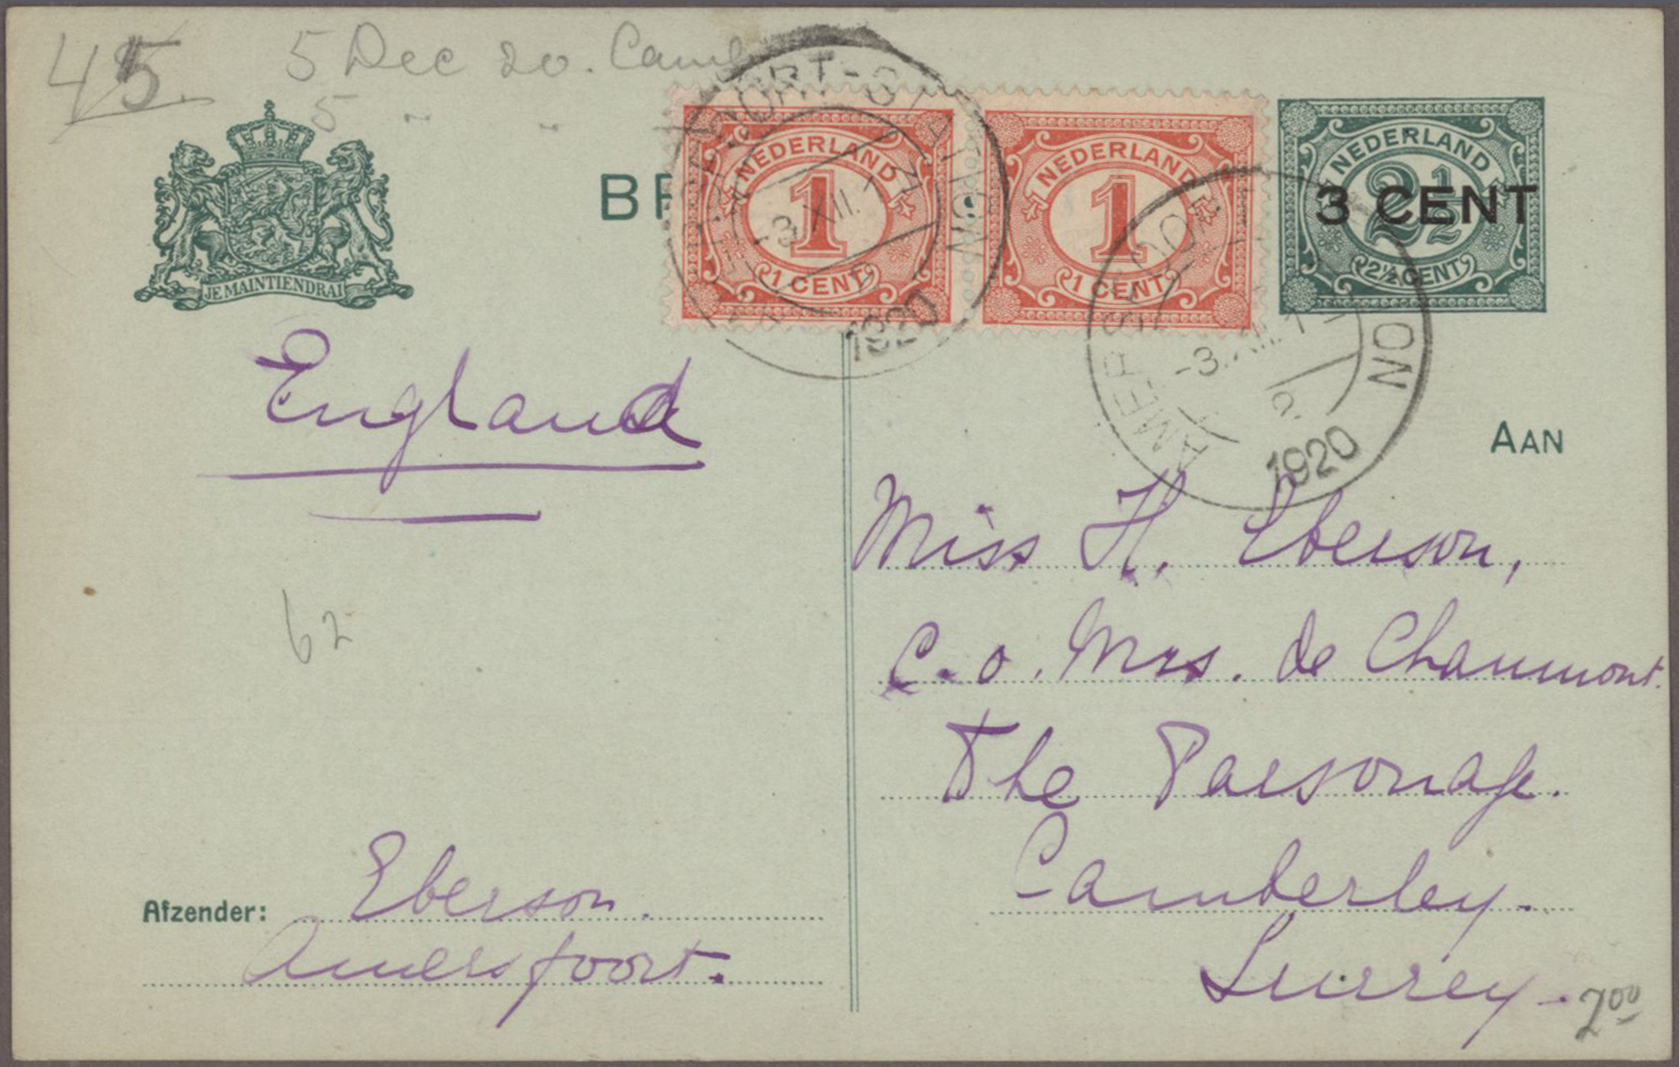 45.
5 Dec 20. Camb
5 " "
JE MAINTIENDRAI
BR
NEDERLAND
1
1 CENT
NEDERLAND
1
1 CENT
NEDERLAND
2½
2½ CENT
3 CENT
AMERSFOORT-STATION
-3.XII.1
1920
AMERSFOORT STATION
-3.XII.1
1920
England
AAN
Miss H. Eberson,
C.o. Mrs. de Chaumont.
The Parsonage.
Camberley.
Surrey.
62
Afzender: Eberson.
Amersfoort.
2.00